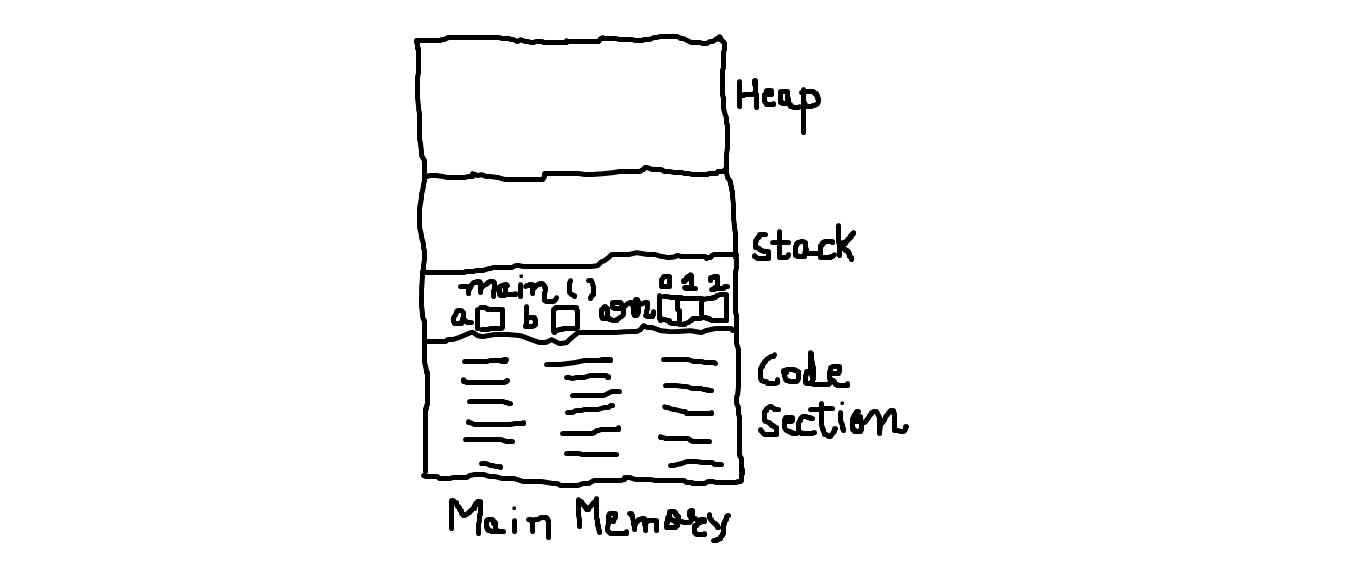 Heap
Stack
main ( )
0 1 2
a b arr
Code
Section
Main Memory